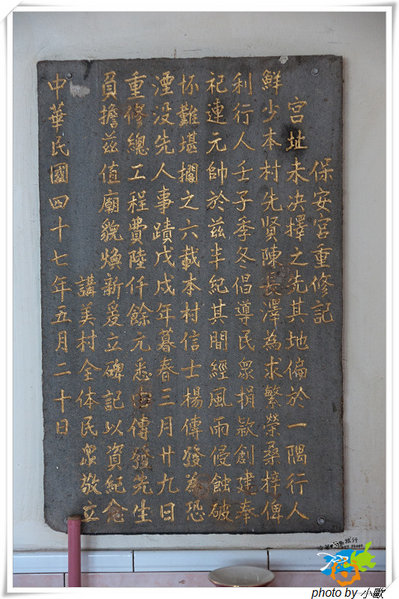 保安宮重修記
宮址未決擇之先其地偏於一隅行人
鮮少本村先賢陳長澤為求繁榮桑梓俾
利行人壬子季冬倡導民眾捐款創建奉
祀連元帥於茲半紀其間經風雨侵蝕破
怀難堪擱之六載本村信士楊傳發為恐
湮没先人事蹟戊戌年暮春三月廿九日
重修總工程費陸仟餘元悉由傳發先生
負擔茲值廟貌煥新爰立碑記以資紀念
講美村全体民眾敬立
中華民國四十七年五月二十日
photo by 小歐